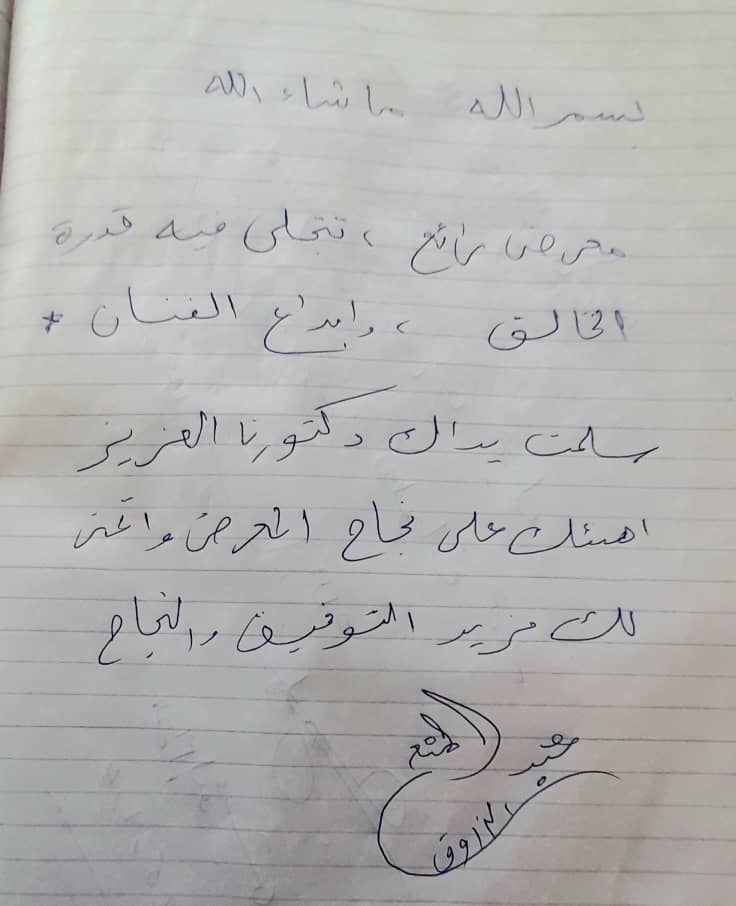 بسم الله ما شاء الله
معرض رائع ، تتجلى فيه قدرة
الخالق ، وابداع الفنان *
سلمت يداك دكتورنا العزيز
اهنئك على نجاح المعرض واتمنى
لك مزيد التوفيق والنجاح
عبد المنعم
الزروق